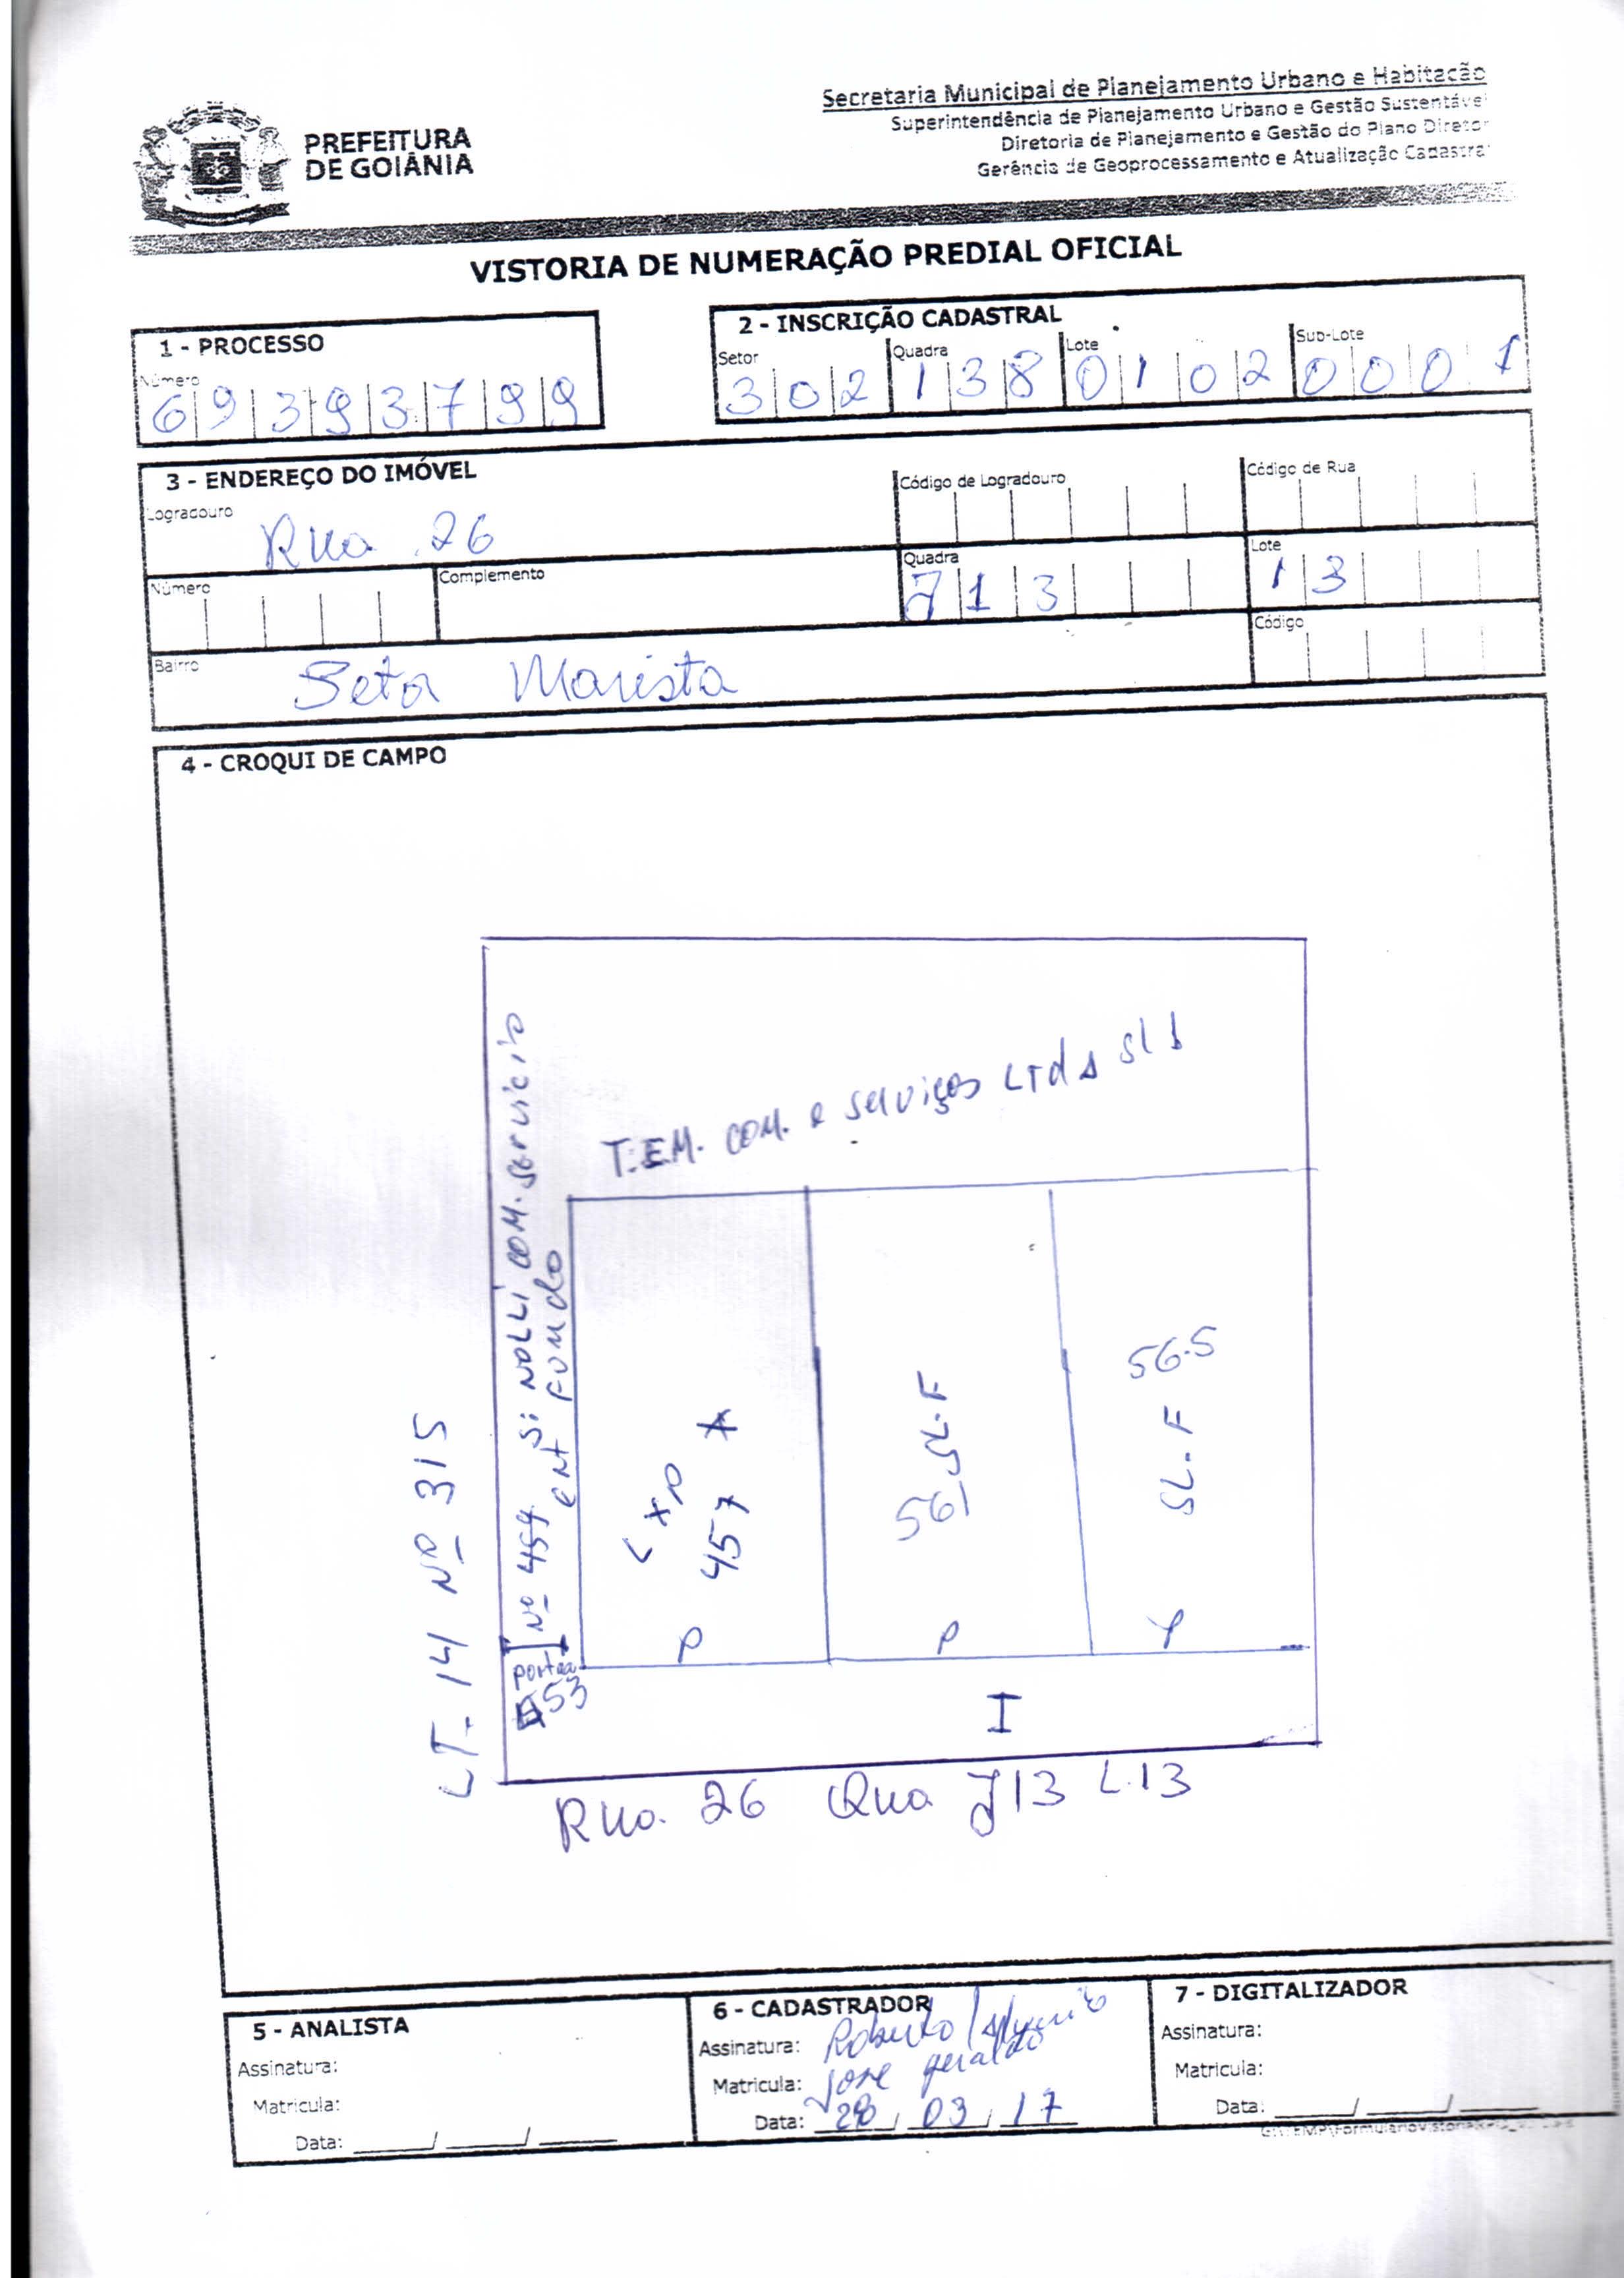 Secretaria Municipal de Planejamento Urbano e Habitação
Superintendência de Planejamento Urbano e Gestão Sustentável
Diretoria de Planejamento e Gestão do Plano Diretor
Gerência de Geoprocessamento e Atualização Cadastral
PREFEITURA
DE GOIÂNIA
VISTORIA DE NUMERAÇÃO PREDIAL OFICIAL
1 - PROCESSO
Número
69393799
2 - INSCRIÇÃO CADASTRAL
Setor Quadra Lote Sub-Lote
302 138 0102 0001
3 - ENDEREÇO DO IMÓVEL
Logradouro Código de Logradouro Código de Rua
Rua 26
Número Complemento Quadra Lote
J13 13
Bairro Código
Setor Marista
4 - CROQUI DE CAMPO
T.E.M. COM. e serviços LTdA Sl 1
Nº 457 Si NOLLI COM. Serviciro
ENT FUNDO
LT- 14 Nº 315
457 A
56 SL.F
56.5
SL.F
P P
Portão
53
I
Rua 26 Qua J13 L.13
5 - ANALISTA
Assinatura:
Matricula:
Data: ____/____/____
6 - CADASTRADOR
Assinatura: Roberto
Matricula: Jose Geraldo
Data: 28/03/17
7 - DIGITALIZADOR
Assinatura:
Matricula:
Data: ____/____/____